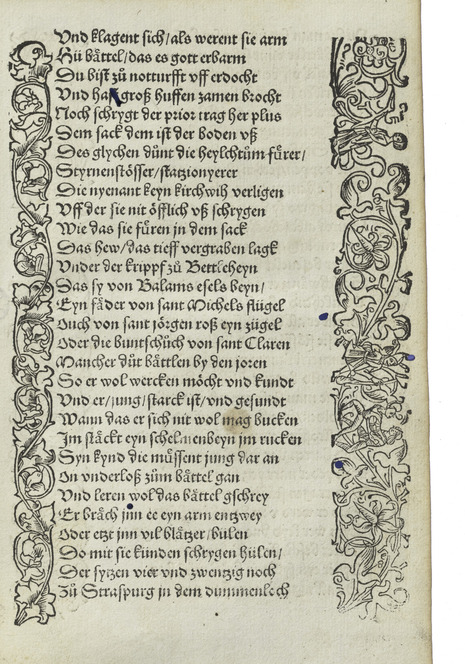 Vnd klagent sich/als werent sie arm
Hü baͤttel/das es gott erbarm
Du bist zuͦ notturfft vff erdocht
Vnd groß huffen zamen brocht
Noch schrygt der prior trag her plus
Dem sack dem ist der boden vß
Des glychen duͤnt die heyltuͦm fuͤrer/
Styrnenstoͤsser/statzionyerer
Die nyenant keyn kirchwih verligen
Vff der sie nit oͤfflich vß schrygen
Wie das sie fuͤren in dem sack
Das hew/das tieff vergraben lagk
Vnder der kripff zuͦ Bettleheyn
Das sy von Balams esels beyn/
Eyn faͤder von sant Michels fluͤgel
Ouch von sant joͤrgen roß eyn zuͤgel
Oder die buntschuͦch von sant Claren
Mancher duͦt baͤttlen by den joren
So er wol wercken moͤcht vnd kundt
Vnd er/jung/starck ist/vnd gesundt
Wann das er sich nit wol mag bucken
Im staͤckt eyn schelmenbeyn jm rucken
Syn kynd die muͤssent jung dar an
On vnderloß zuͦm baͤttel gan
Vnd leren wol das baͤttel gschrey
Er braͤch jnn ee eyn arm entzwey
Oder etzt jnn vil blaͤtzer/bulen
Do mit sie kuͤnden schrygen huͤlen/
Der sytzen vier vnd zwentzig noch
Zuͦ Straspurg in dem dummenloch